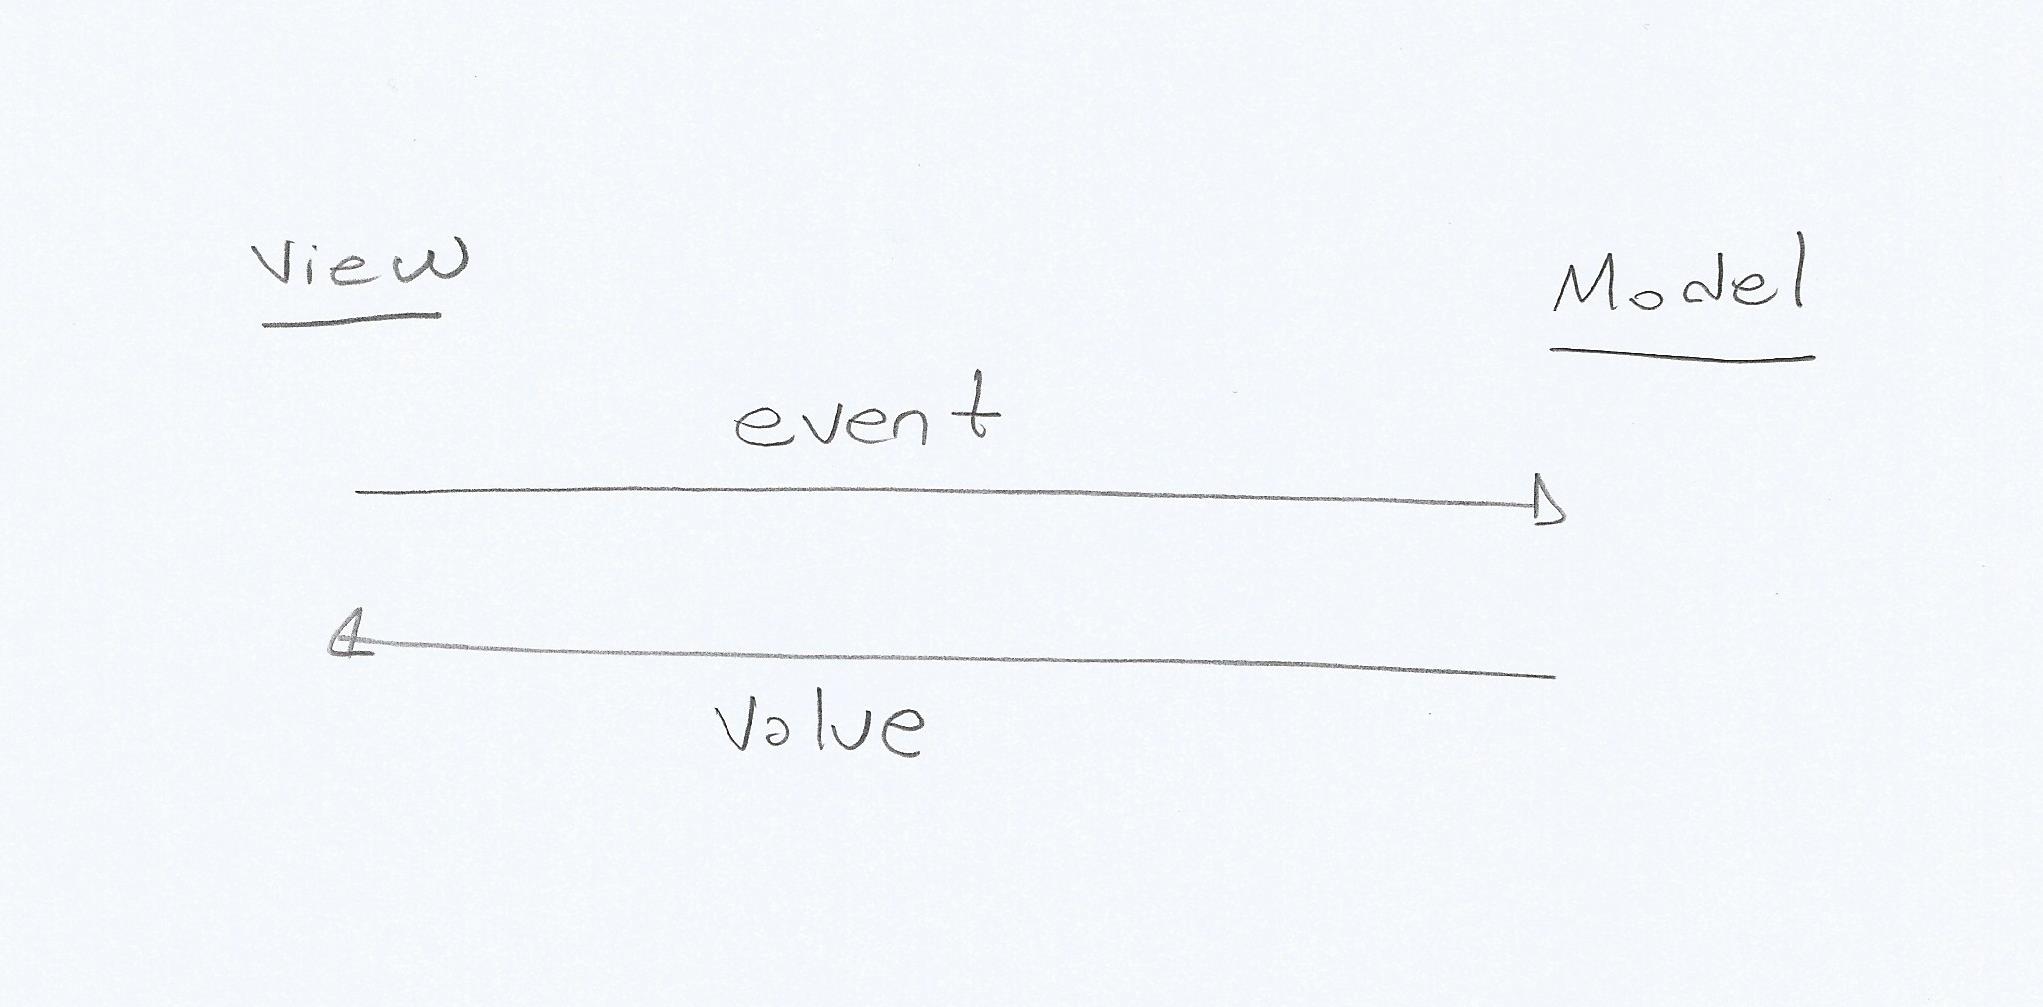 View
Model
event
Value